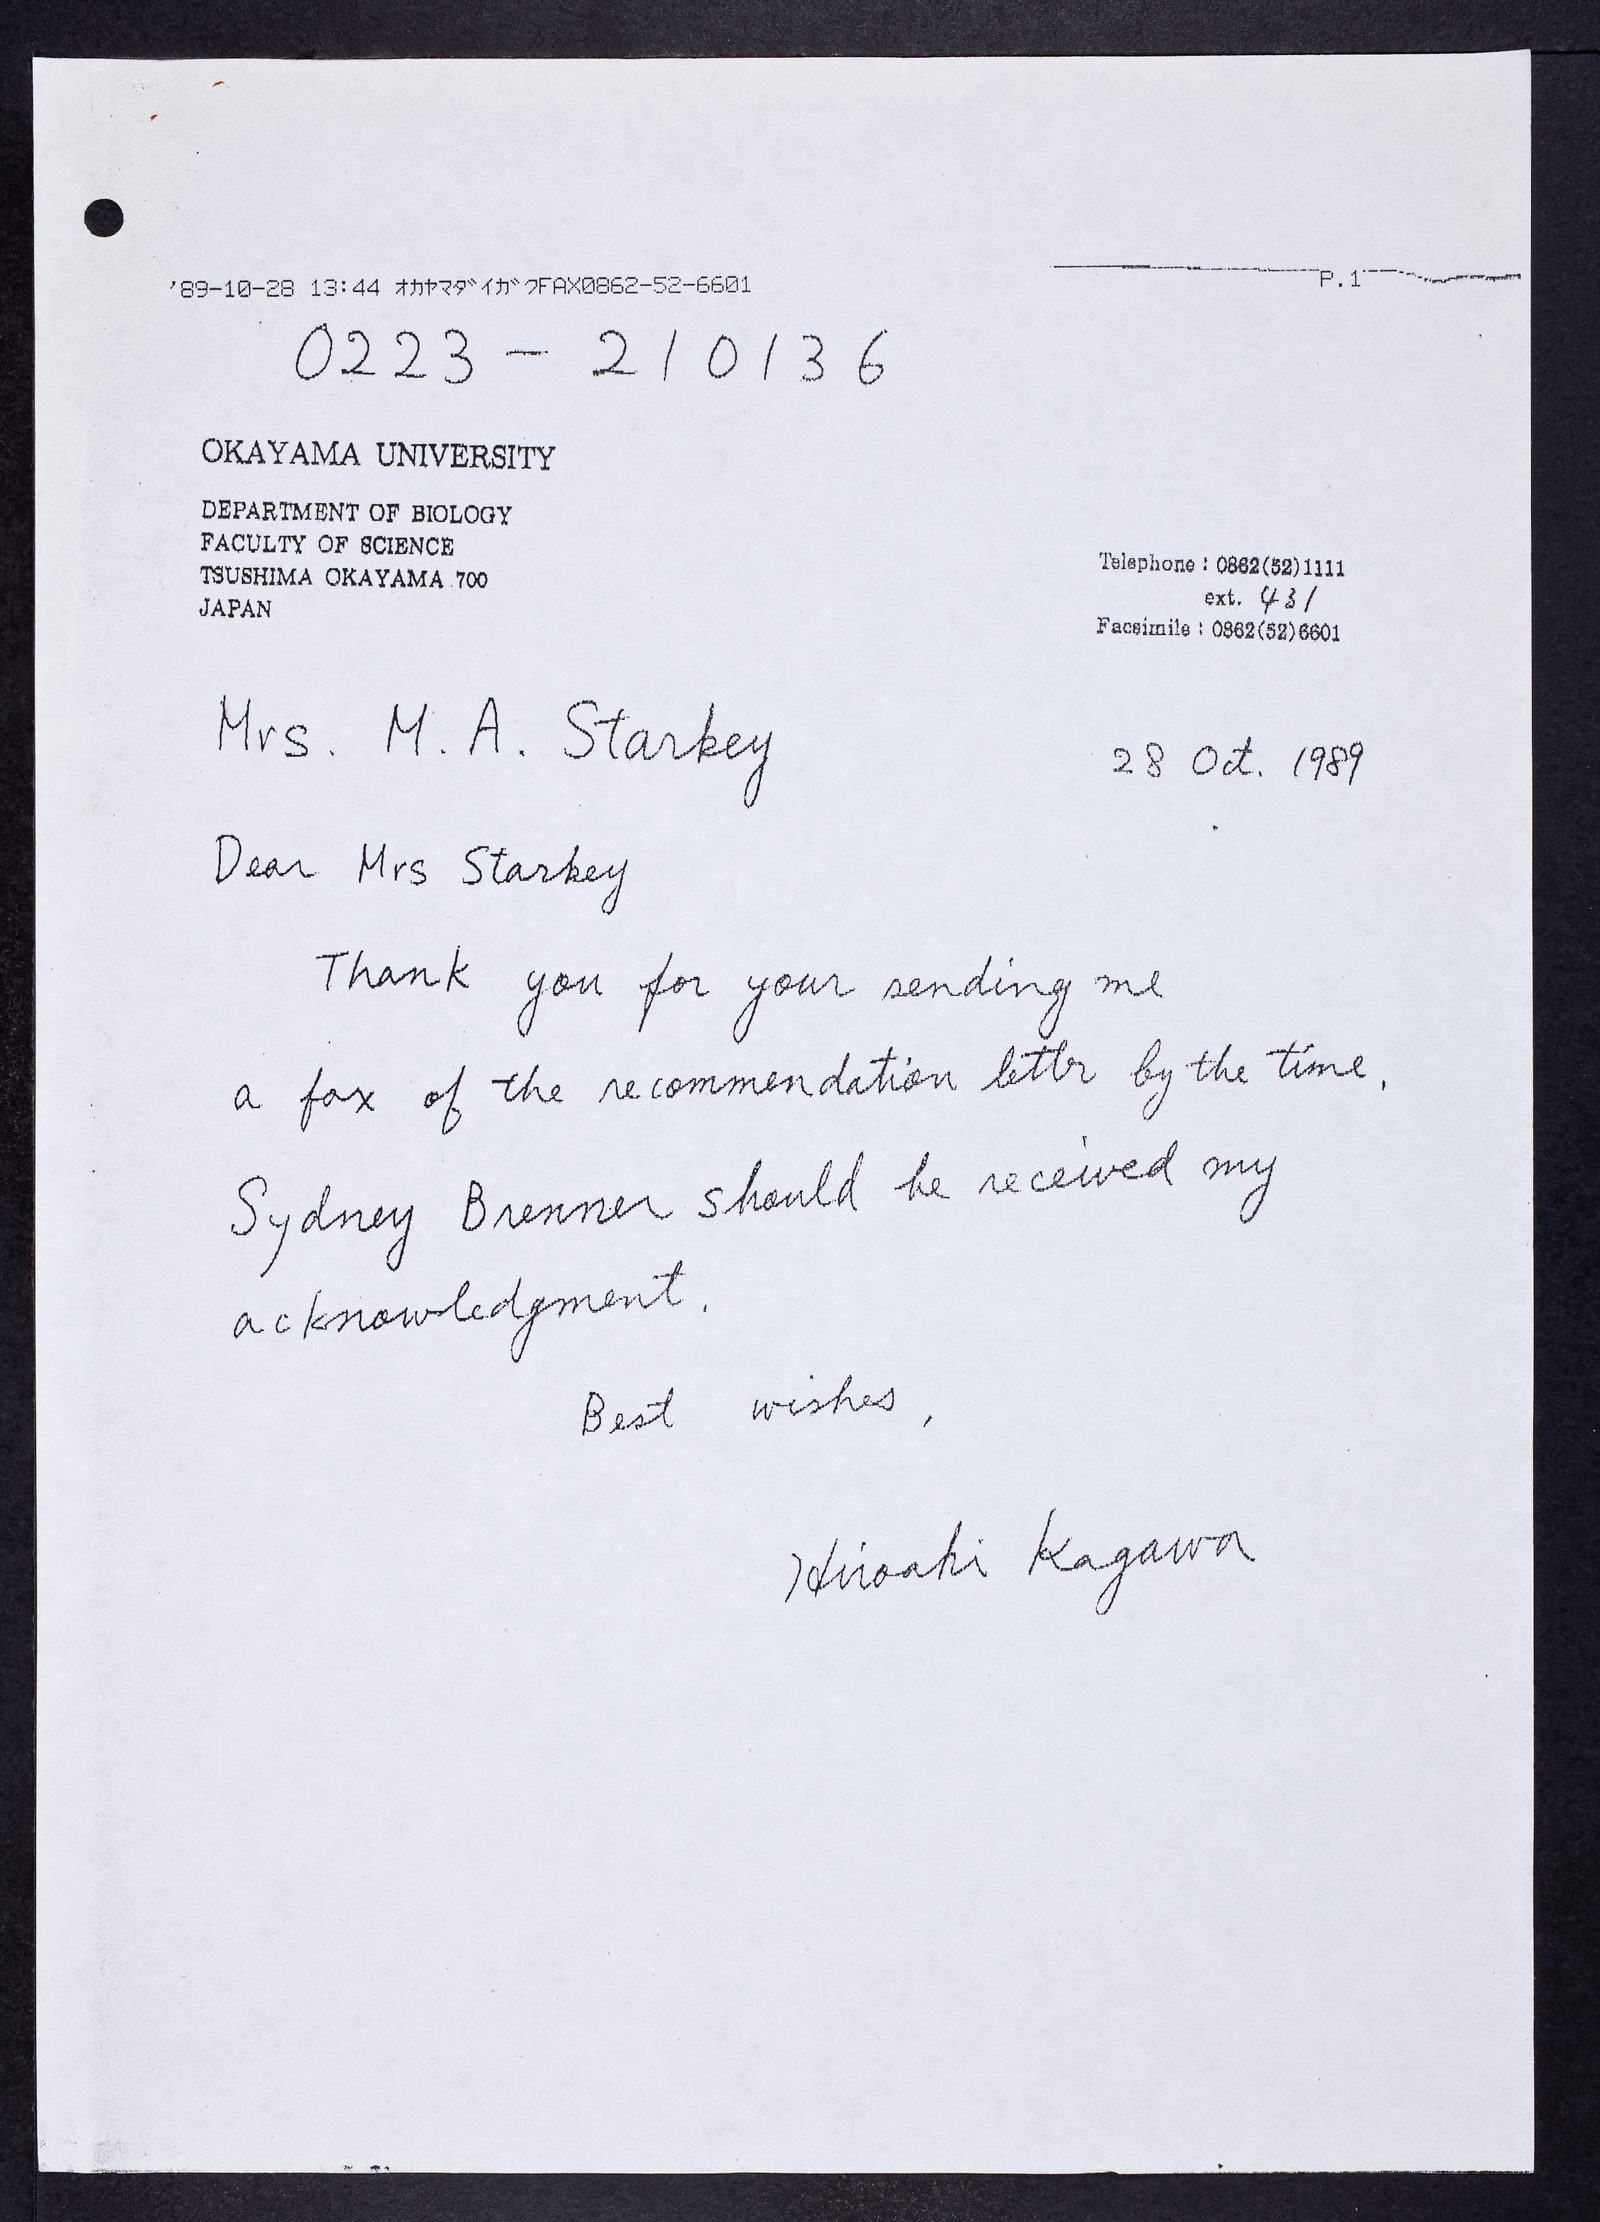 '89-10-28 13:44 オカヤマダイガクFAX0862-52-6601 P.1
0223-210136
OKAYAMA UNIVERSITY
DEPARTMENT OF BIOLOGY
FACULTY OF SCIENCE
TSUSHIMA OKAYAMA 700
JAPAN
Telephone : 0862(52)1111
ext. 431
Facsimile : 0862(52)6601
Mrs. M. A. Starkey
28 Oct. 1989
Dear Mrs Starkey
Thank you for your sending me
a fax of the recommendation letter by the time.
Sydney Brenner should be received my
acknowledgment.
Best wishes,
Hiroaki Kagawa